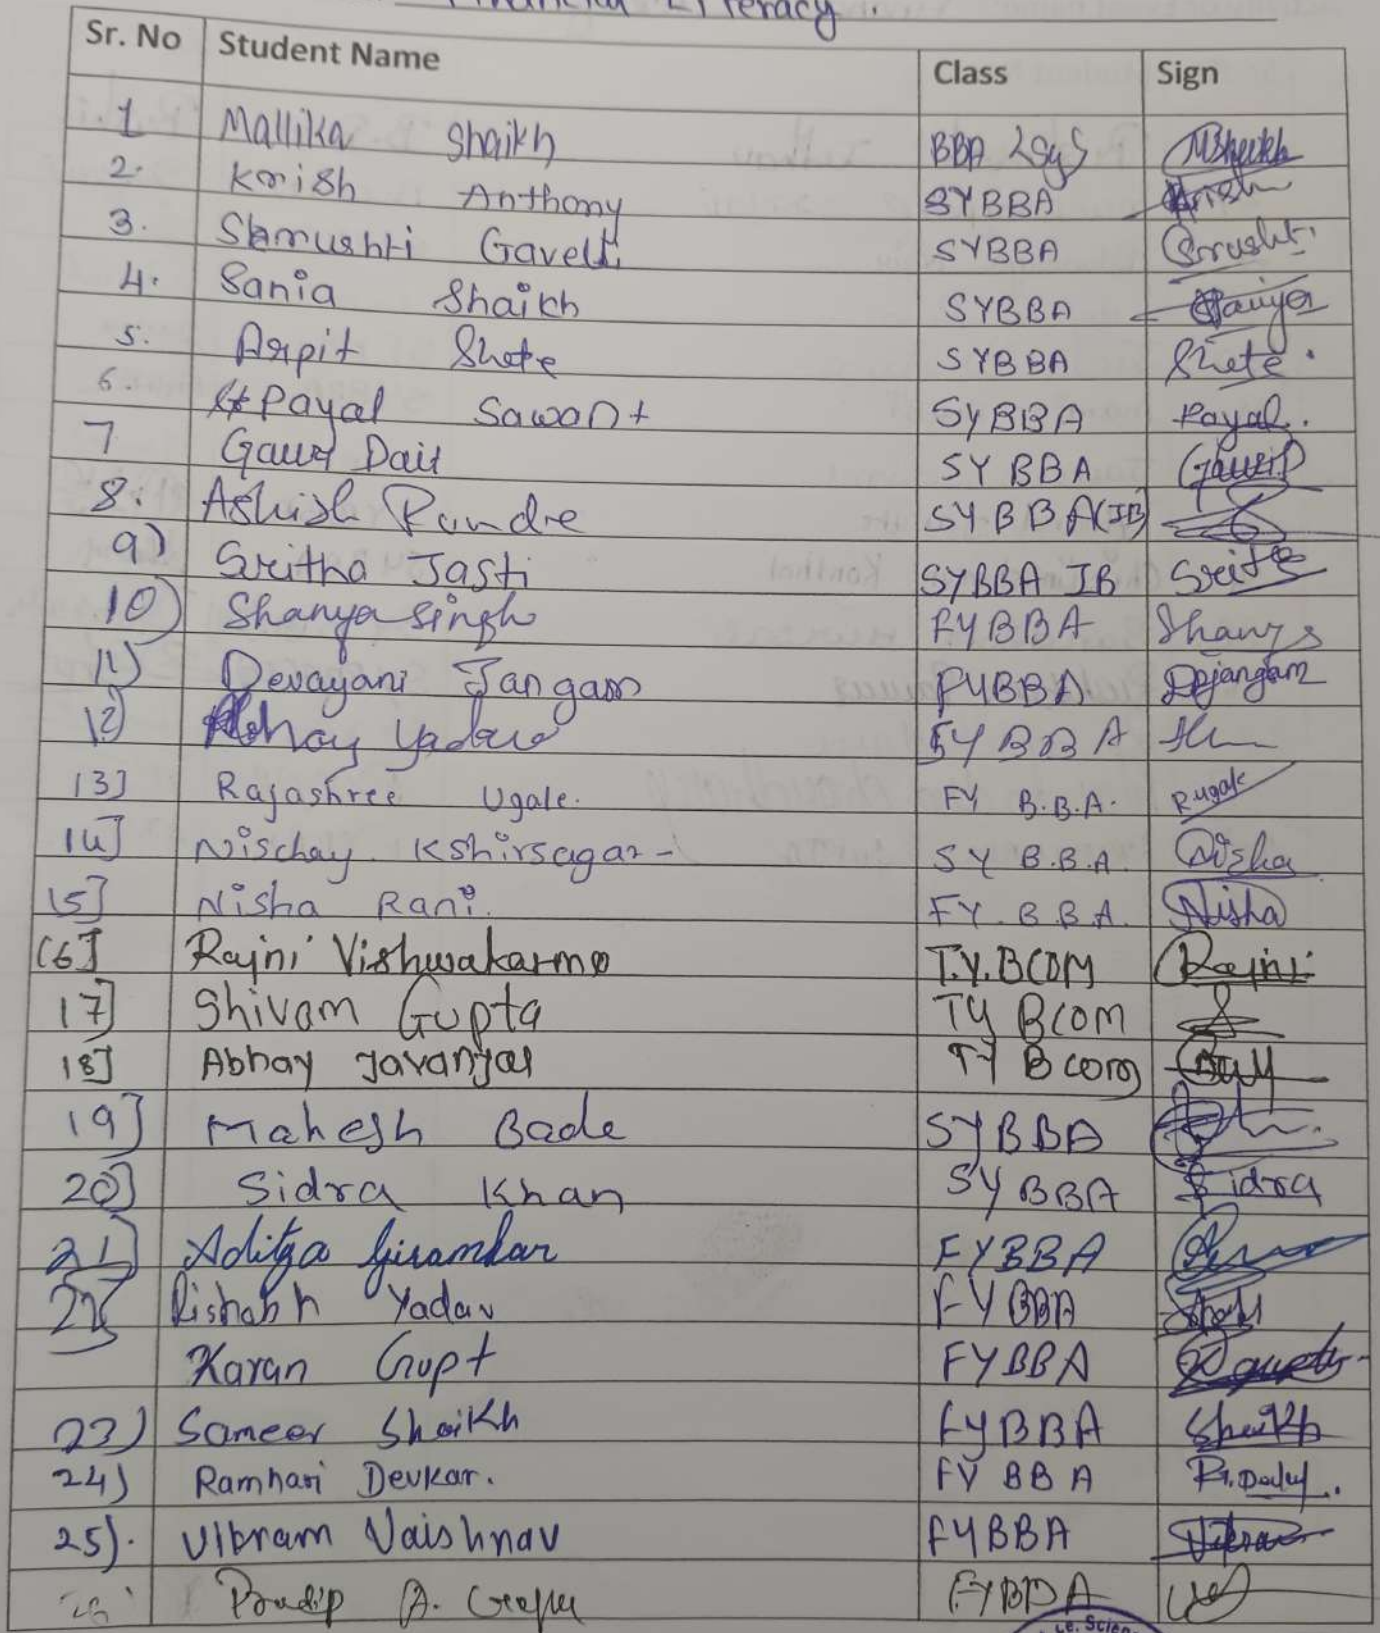 Financial Literacy.
Sr. No Student Name Class Sign
1 Mallika Shaikh BBA MShaikh
2. Krish Anthony SYBBA Krish
3. Shrushti Gavelli SYBBA Srushti
4. Sania Shaikh SYBBA Saniya
5. Arpit Shete SYBBA Shete.
6. Payal Sawant SYBBA Payal.
7 Gauri Dait SY BBA Gauri
8. Ashish Pandre SYBBA(IB)
9) Sritha Jasti SYBBA IB Sritha
10) Shanya Singh FYBBA Shanya
11) Devayani Jangam FYBBA Dejangam
12) Abhay Yadav FYBBA
13] Rajashree Ugale. FY B.B.A. Rugale
14] Nischay Kshirsagar - SY B.B.A
15] Nisha Rani. FY. B B A. Nisha
16] Rajni Vishwakarma T.Y.BCOM Rajni
17] Shivam Gupta TY BCOM
18] Abhay Javanjal TY Bcom
19] Mahesh Bade SYBBA
20] Sidra Khan SY BBA Sidra
21] Aditya Giramkar FYBBA
22 Rishabh Yadav FYBBA
Karan Gupt FYBBA
23) Sameer Shaikh FYBBA Shaikh
24) Ramhari Devkar. FY BBA
25). Vikram Vaishnav FYBBA Vikram
26 Pradip A. FYBBA